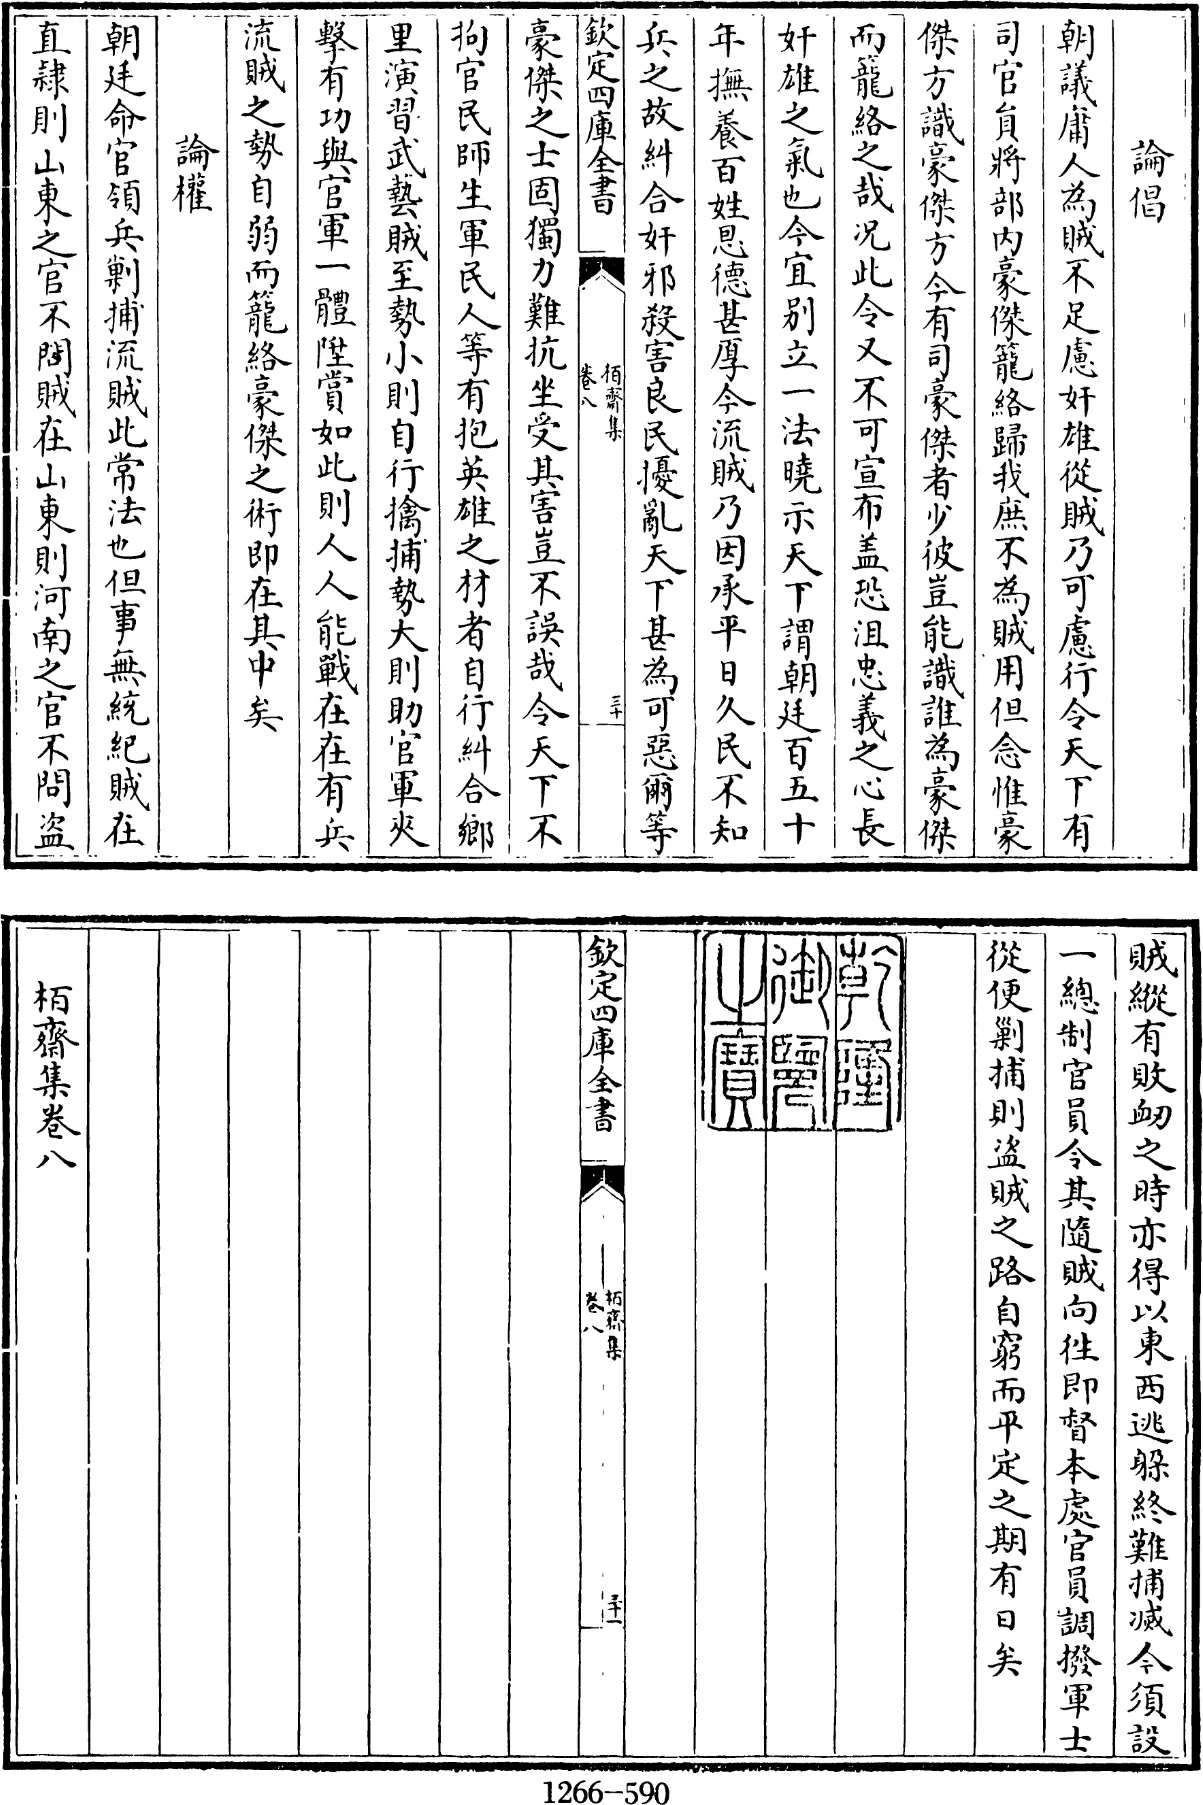 論倡
朝議庸人為賊不足慮奸雄從賊乃可慮行令天下有
司官員將部内豪傑籠絡歸我庶不為賊用但念惟豪
傑方識豪傑方今有司豪傑者少彼豈能識誰為豪傑
而籠絡之哉况此令又不可宣布盖恐沮忠義之心長
奸雄之氣也今宜别立一法曉示天下謂朝廷百五十
年撫養百姓恩德甚厚今流賊乃因承平日久民不知
兵之故糾合奸邪殺害良民擾亂天下甚為可惡爾等
欽定四庫全書
栢齋集
卷八
三十
豪傑之士固獨力難抗坐受其害豈不誤哉令天下不
拘官民師生軍民人等有抱英雄之材者自行糾合鄉
里演習武藝賊至勢小則自行擒捕勢大則助官軍夾
擊有功與官軍一體陞賞如此則人人能戰在在有兵
流賊之勢自弱而籠絡豪傑之術即在其中矣
論權
朝廷命官領兵剿捕流賊此常法也但事無統紀賊在
直隸則山東之官不問賊在山東則河南之官不問盜
賊縱有敗衂之時亦得以東西逃躱終難捕滅今須設
一總制官員令其隨賊向徃即督本處官員調撥軍士
從便剿捕則盜賊之路自窮而平定之期有日矣
乾隆
御覽
之寶
欽定四庫全書
栢齋集
卷八
三十一
栢齋集卷八
1266-590